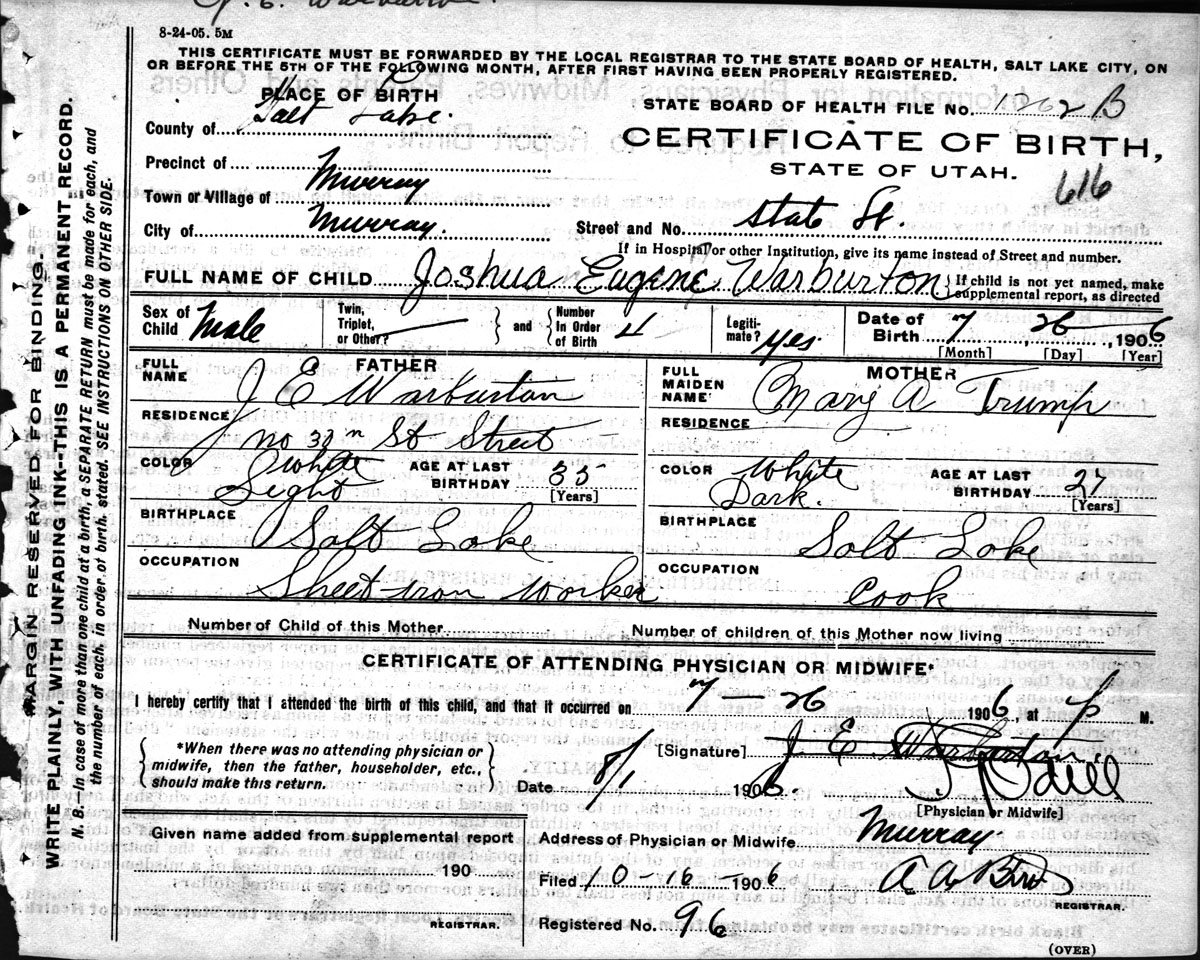 8-24-05. 5M
THIS CERTIFICATE MUST BE FORWARDED BY THE LOCAL REGISTRAR TO THE STATE BOARD OF HEALTH, SALT LAKE CITY, ON
OR BEFORE THE 5TH OF THE FOLLOWING MONTH, AFTER FIRST HAVING BEEN PROPERLY REGISTERED.
PLACE OF BIRTH
County of Salt Lake.
STATE BOARD OF HEALTH FILE No. 1262 B
CERTIFICATE OF BIRTH,
STATE OF UTAH.
616
Precinct of
Town or Village of Murray
City of Murray.
Street and No. State St.
If in Hospital or other Institution, give its name instead of Street and number.
FULL NAME OF CHILD Joshua Eugene Warburton } If child is not yet named, make supplemental report, as directed
Sex of Child Male
Twin, Triplet, or Other? } and { Number In Order of Birth 4
Legitimate? yes.
Date of Birth 7 26 1906
[Month] [Day] [Year]
FATHER
FULL NAME J E Warburton
MOTHER
FULL MAIDEN NAME Mary A Trump
RESIDENCE no 33 St Street
RESIDENCE
COLOR White
AGE AT LAST BIRTHDAY 35
[Years]
COLOR White Dark.
AGE AT LAST BIRTHDAY 27
[Years]
BIRTHPLACE Salt Lake
BIRTHPLACE Salt Lake
OCCUPATION Sheet iron Worker
OCCUPATION Cook
Number of Child of this Mother
Number of children of this Mother now living
CERTIFICATE OF ATTENDING PHYSICIAN OR MIDWIFE*
I hereby certify that I attended the birth of this child, and that it occurred on 7 - 26 1906, at P M.
{ *When there was no attending physician or midwife, then the father, householder, etc., should make this return. }
[Signature] J E Warburton
Date 8/1 1906.
[Physician or Midwife]
Given name added from supplemental report
190
REGISTRAR.
Address of Physician or Midwife Murray
Filed 10-16-1906
REGISTRAR.
Registered No. 96
(OVER)
MARGIN RESERVED FOR BINDING.
WRITE PLAINLY, WITH UNFADING INK--THIS IS A PERMANENT RECORD.
N. B.—In case of more than one child at a birth, a SEPARATE RETURN must be made for each, and
the number of each, in order of birth, stated. SEE INSTRUCTIONS ON OTHER SIDE.